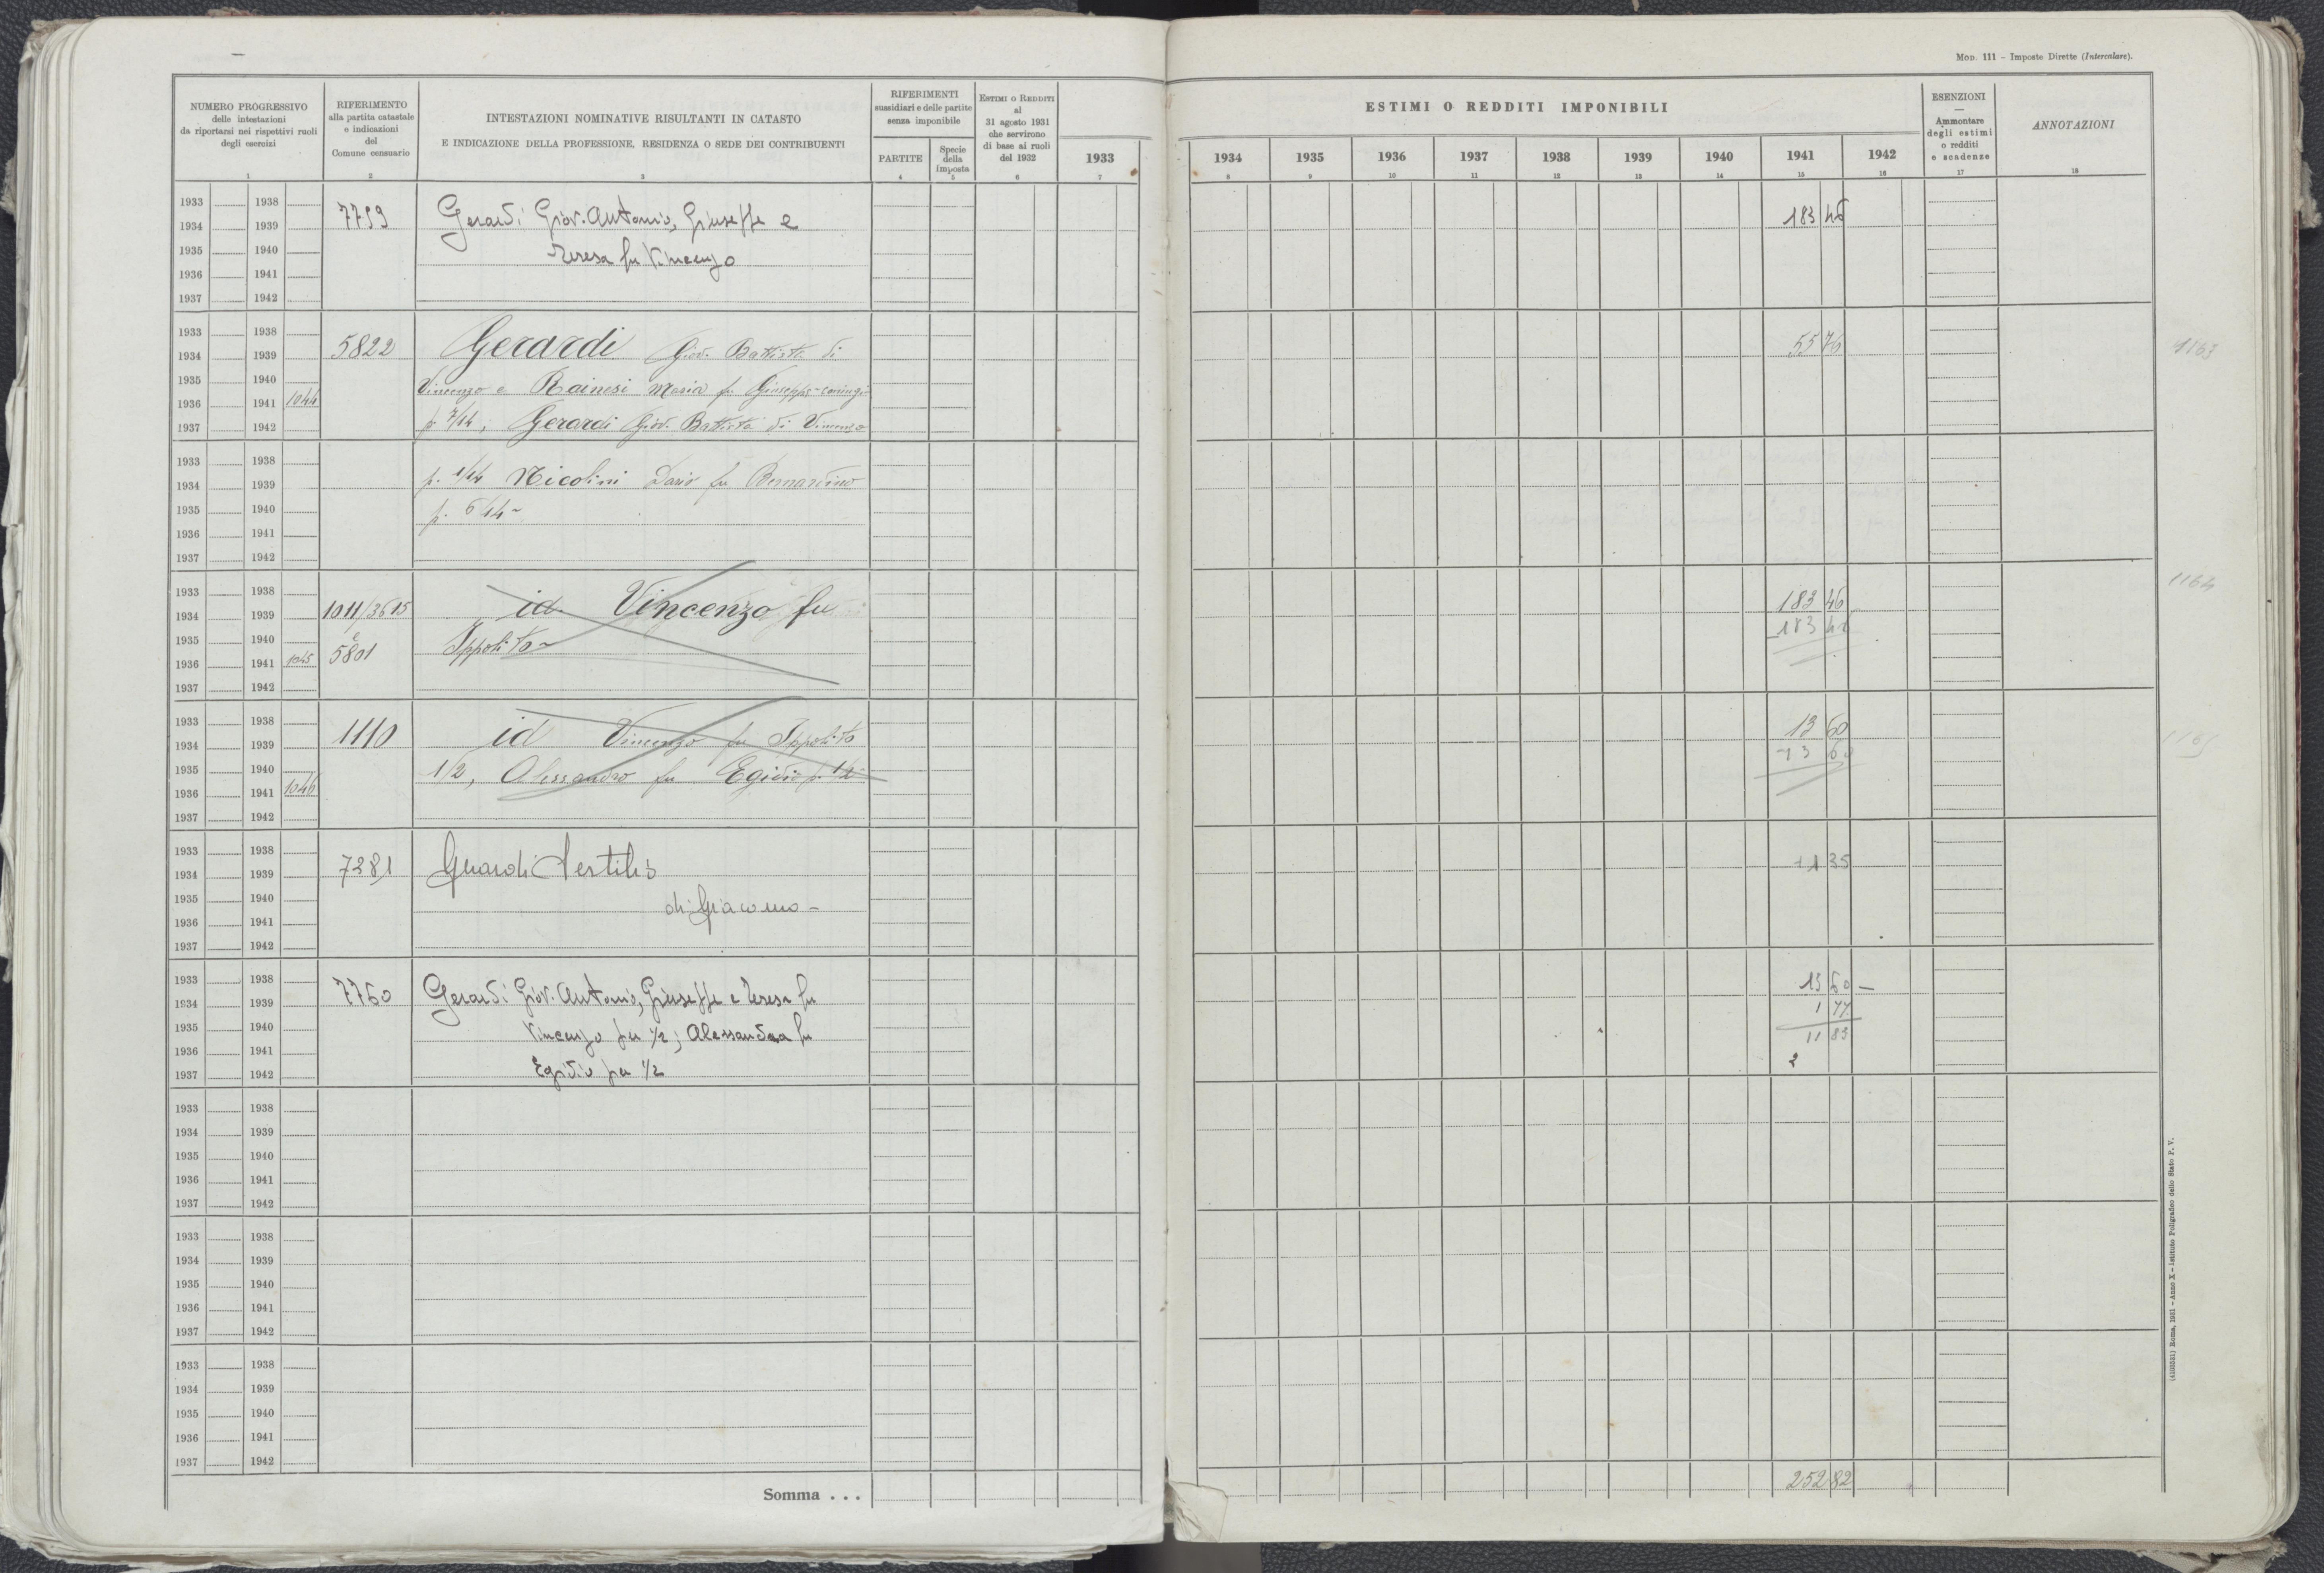 Mod. 111 - Imposte Dirette (Intercalare).
NUMERO PROGRESSIVO
delle intestazioni
da riportarsi nei rispettivi ruoli
degli esercizi
1
RIFERIMENTO
alla partita catastale
e indicazioni
del
Comune censuario
2
INTESTAZIONI NOMINATIVE RISULTANTI IN CATASTO
E INDICAZIONE DELLA PROFESSIONE, RESIDENZA O SEDE DEI CONTRIBUENTI
3
RIFERIMENTI
sussidiari e delle partite
senza imponibile
PARTITE
4
Specie
della
imposta
5
ESTIMI O REDDITI
al
31 agosto 1931
che servirono
di base ai ruoli
del 1932
6
1933
7
ESTIMI O REDDITI IMPONIBILI
1934 1935 1936 1937 1938 1939 1940 1941 1942
8 9 10 11 12 13 14 15 16
ESENZIONI
—
Ammontare
degli estimi
o redditi
e scadenze
17
ANNOTAZIONI
18
1933 1938
1934 1939 7759 Gerardi Giov. Antonio, Giuseppe e 183 46
1935 1940 Teresa fu Vincenzo
1936 1941
1937 1942
1933 1938
1934 1939 5822 Gerardi Giov. Battista di 55 76 1163
1935 1940 Vincenzo e Rainesi Maria fu Giuseppe-coniugi
1936 1941 1044
1937 1942 p. 7/14; Gerardi Giov. Battista di Vincenzo
1933 1938
1934 1939 p. 1/14 Nicolini Dario fu Bernardino
1935 1940 p. 6/14-
1936 1941
1937 1942
1933 1938 1164
1934 1939 1011/3615 id. Vincenzo fu 183 46
1935 1940 e Ippolito 183 46
1936 1941 1045 5801
1937 1942
1933 1938
1934 1939 1110 id Vincenzo fu Ippolito 13 60 1165
1935 1940 1/2, Alessandro fu Egidio p. 1/2 13 60
1936 1941 1046
1937 1942
1933 1938
1934 1939 7281 Gerardi +1 35
1935 1940 di Giacomo -
1936 1941
1937 1942
1933 1938 13 60 —
1934 1939 7760 Gerardi Giov. Antonio, Giuseppe e Teresa fu 1 77
1935 1940 Vincenzo per 1/2; Alessandra fu 11 83
1936 1941 2
1937 1942 Egidio per 1/2
1933 1938
1934 1939
1935 1940
1936 1941
1937 1942
1933 1938
1934 1939
1935 1940
1936 1941
1937 1942
1933 1938
1934 1939
1935 1940
1936 1941
1937 1942
Somma . . . 252 82
(498381) Roma, 1931 - Anno X - Istituto Poligrafico dello Stato P. V.